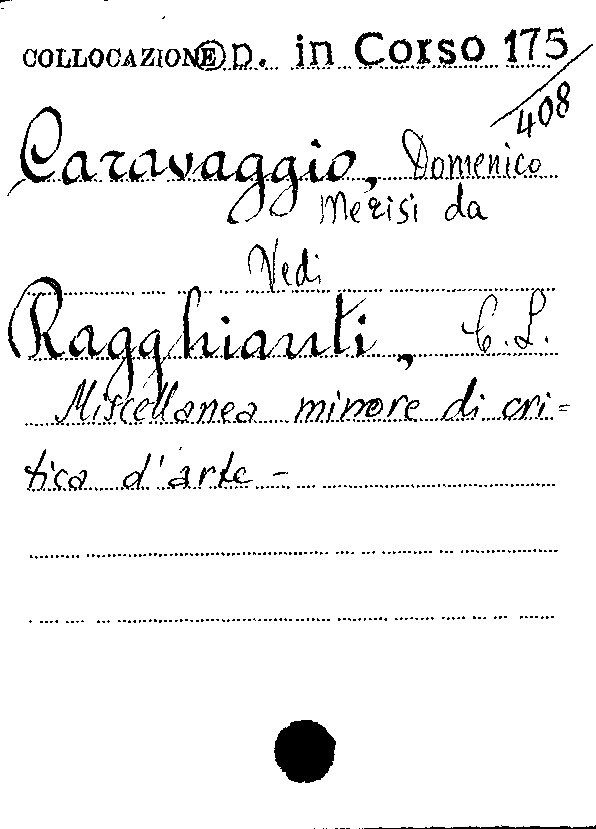 COLLOCAZIONE Op. in Corso 175
408
Caravaggio, Domenico
Merisi da
Vedi
Ragghianti, C. L.
Miscellanea minore di cri=
tica d'arte -